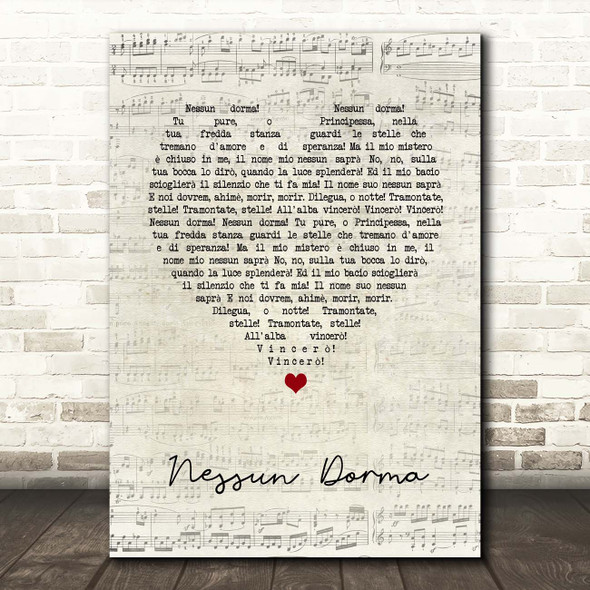 Nessun dorma! Nessun dorma!
Tu pure, o Principessa, nella
tua fredda stanza guardi le stelle che
tremano d'amore e di speranza! Ma il mio mistero
è chiuso in me, il nome mio nessun saprà No, no, sulla
tua bocca lo dirò, quando la luce splenderà! Ed il mio bacio
scioglierà il silenzio che ti fa mia! Il nome suo nessun saprà
E noi dovrem, ahimè, morir, morir. Dilegua, o notte! Tramontate,
stelle! Tramontate, stelle! All'alba vincerò! Vincerò! Vincerò!
Nessun dorma! Nessun dorma! Tu pure, o Principessa, nella
tua fredda stanza guardi le stelle che tremano d'amore
e di speranza! Ma il mio mistero è chiuso in me, il
nome mio nessun saprà No, no, sulla tua bocca lo dirò,
quando la luce splenderà! Ed il mio bacio scioglierà
il silenzio che ti fa mia! Il nome suo nessun
saprà E noi dovrem, ahimè, morir, morir.
Dilegua, o notte! Tramontate,
stelle! Tramontate, stelle!
All'alba vincerò!
Vincerò!
Vincerò!
Nessun Dorma